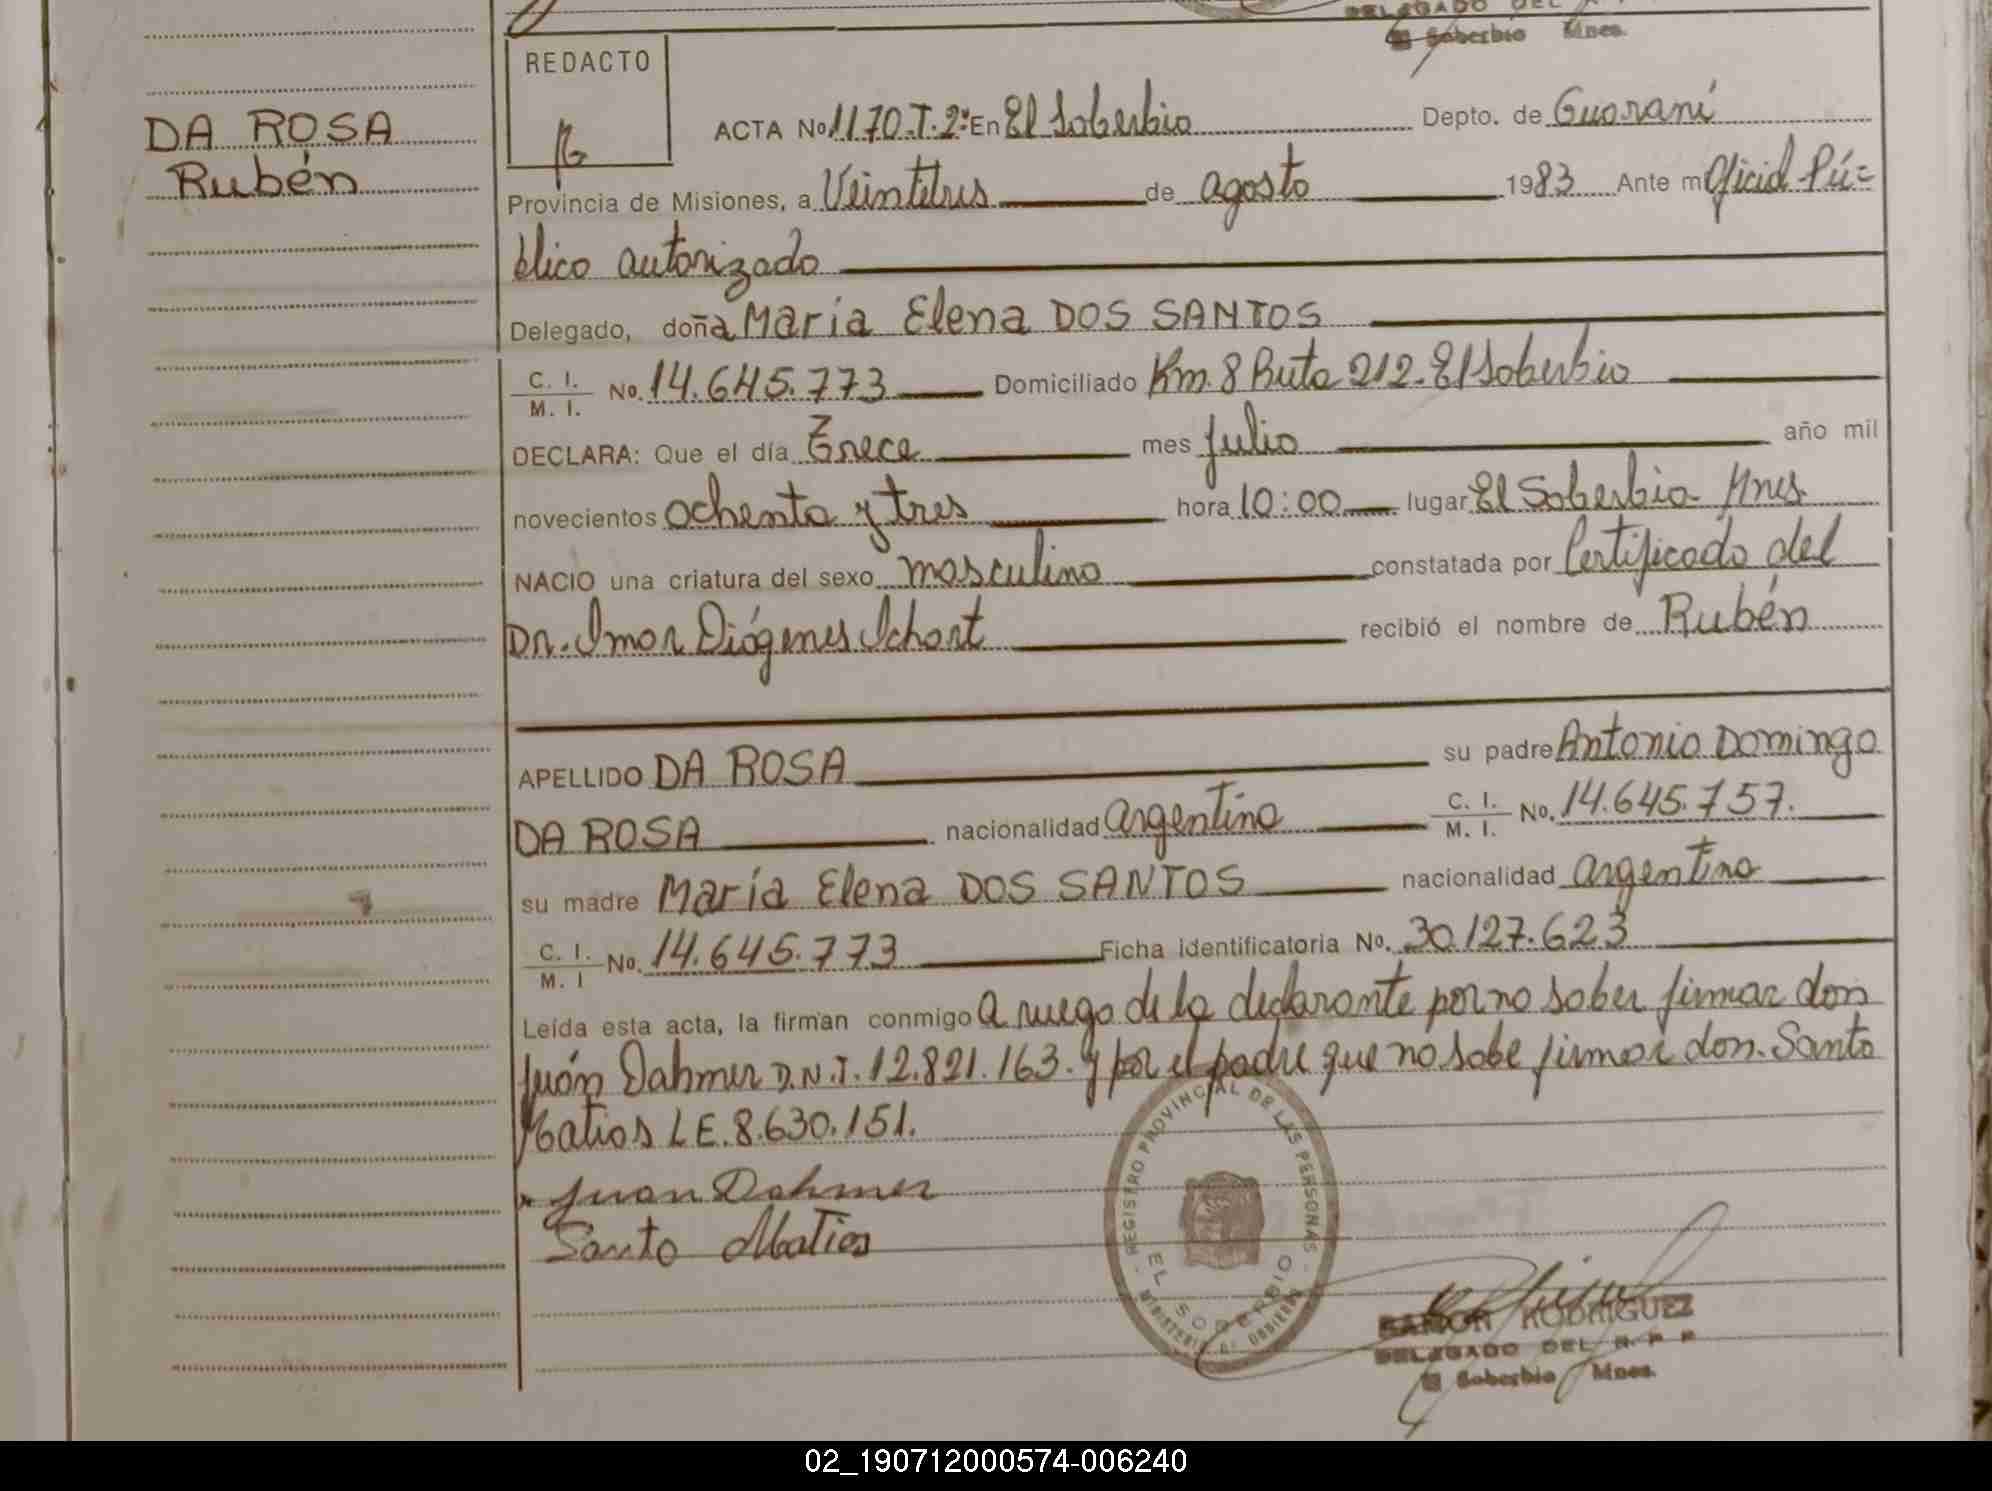 DELEGADO DEL R.
El Soberbio Mnes.
REDACTO
DA ROSA
Rubén
ACTA No 1170.T.2º En El Soberbio Depto. de Guaraní
Provincia de Misiones, a Veintitres de agosto 1983 Ante mí Oficial Pú=
blico autorizado
Delegado, doña María Elena DOS SANTOS
C. I. / M. I. No. 14.645.773 Domiciliado Km. 8 Ruta 212. El Soberbio
DECLARA: Que el día Trece mes julio año mil
novecientos ochenta y tres hora 10:00 lugar El Soberbio Mnes.
NACIO una criatura del sexo masculino constatada por Certificado del
Dr. Imar Diógenes Schort recibió el nombre de Rubén
APELLIDO DA ROSA su padre Antonio Domingo
DA ROSA nacionalidad argentina C. I. / M. I. No. 14.645.757.
su madre María Elena DOS SANTOS nacionalidad argentina
C. I. / M. I No. 14.645.773 Ficha identificatoria No. 30.127.623
Leída esta acta, la firman conmigo A ruego de la declarante por no saber firmar don
Juán Dahmer D.N.I. 12.821.163. y por el padre que no sabe firmar don. Santo
Matios L.E. 8.630.151.
Juan Dahmer
Santo Matios
REGISTRO PROVINCIAL DE LAS PERSONAS
EL SOBERBIO
MINISTERIO DE GOBIERNO
RAMON RODRIGUEZ
DELEGADO DEL R P P
El Soberbio Mnes.
02_190712000574-006240